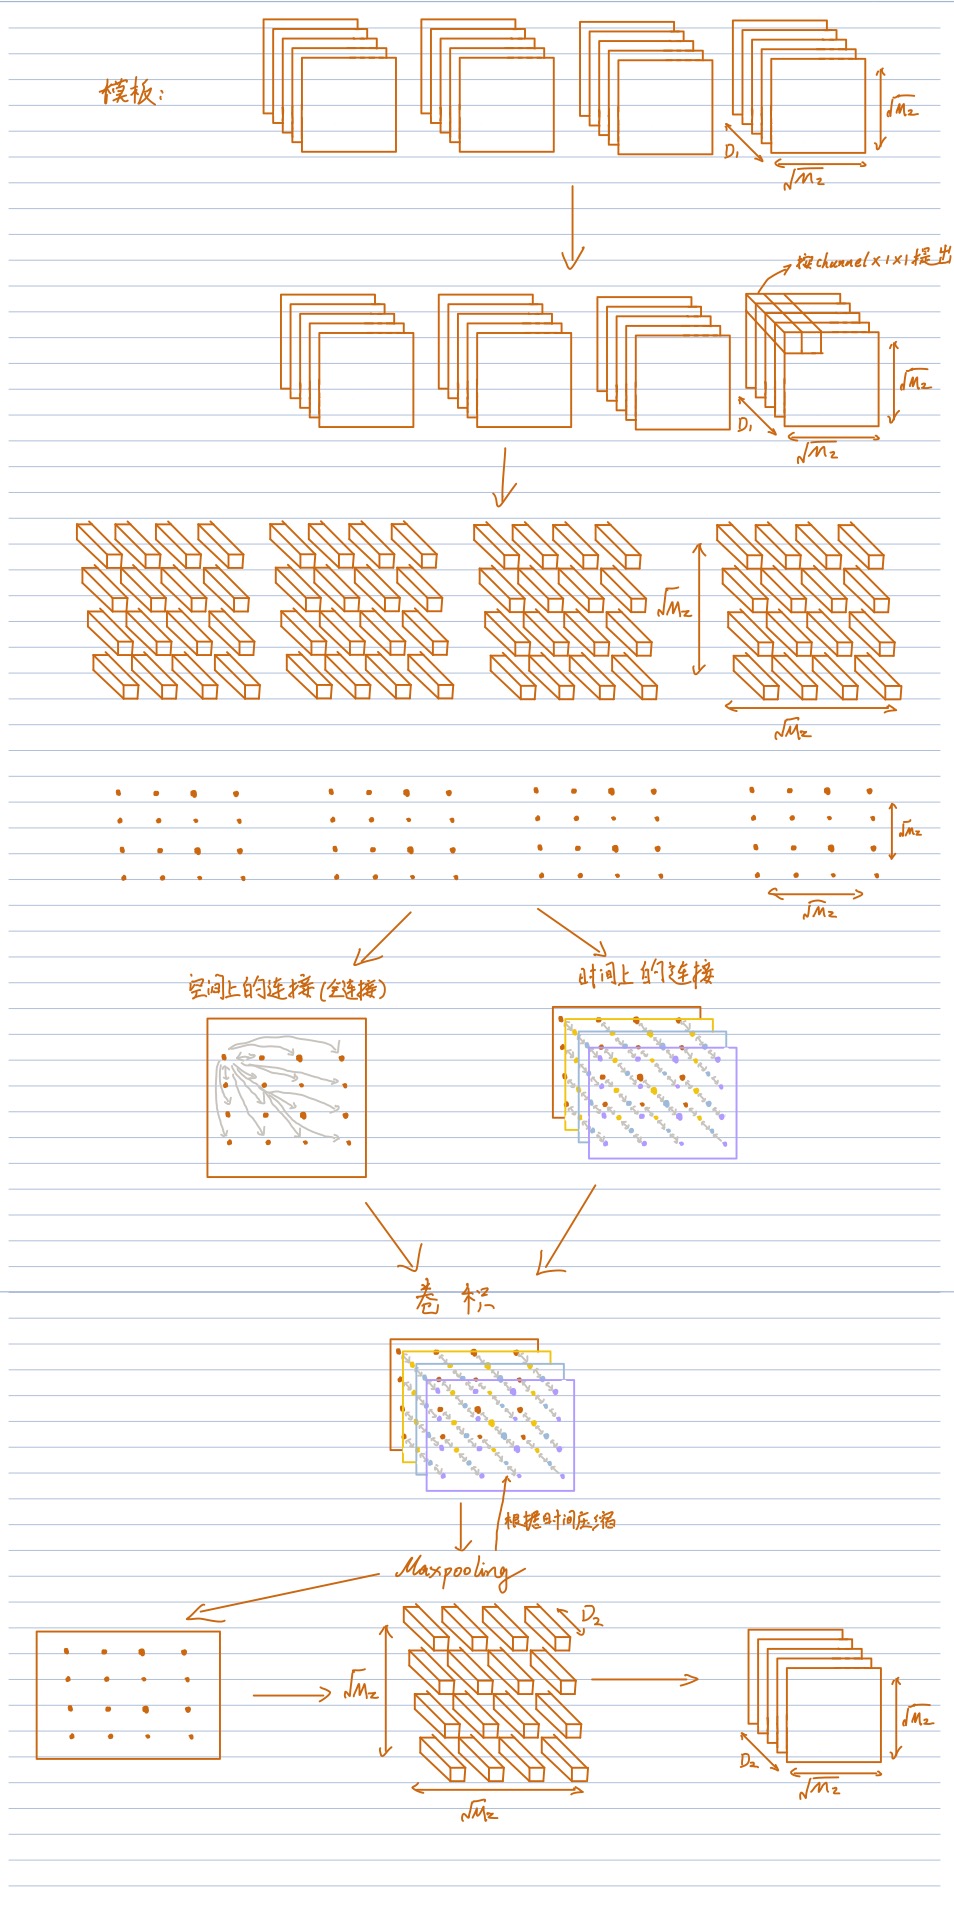 模板:
√M₂
D₁
√M₂
按channel×1×1提出
√M₂
D₁
√M₂
√M₂
√M₂
√M₂
√M₂
空间上的连接(全连接)
时间上的连接
卷积
根据时间压缩
Maxpooling
D₂
√M₂
√M₂
√M₂
D₂
√M₂